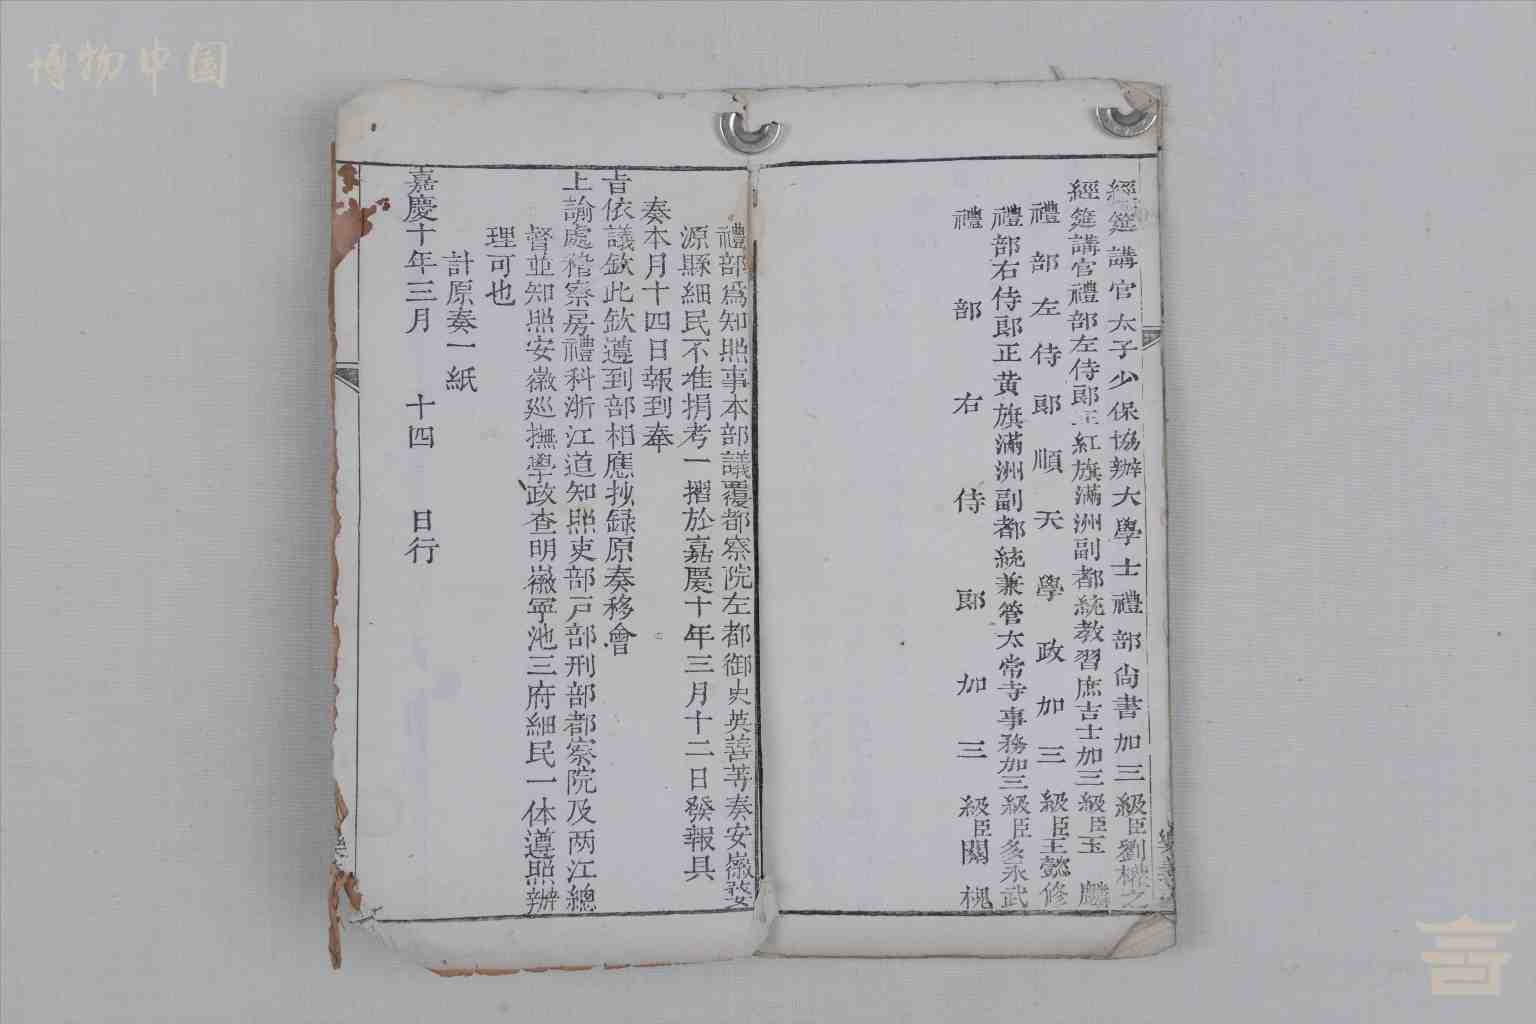 博物中国
經筵講官太子少保協辦大學士禮部尚書加三級臣劉權之
經筵講官禮部左侍郎正紅旗滿洲副都統教習庶吉士加三級臣玉麟
禮部左侍郎順天學政加三級臣王懿修
禮部右侍郎正黃旗滿洲副都統兼管太常寺事務加三級臣多永武
禮部右侍郎加三級臣關槐
禮部爲知照事本部議覆都察院左都御史英善等奏安徽婺
源縣細民不准捐考一摺於嘉慶十年三月十二日發報具
奏本月十四日報到奉
旨依議欽此欽遵到部相應抄録原奏移會
上諭處稽察房禮科浙江道知照吏部戸部刑部都察院及两江總
督並知照安徽廵撫學政查明徽寧池三府細民一体遵照辦
理可也
計原奏一紙
嘉慶十年三月 十四 日行